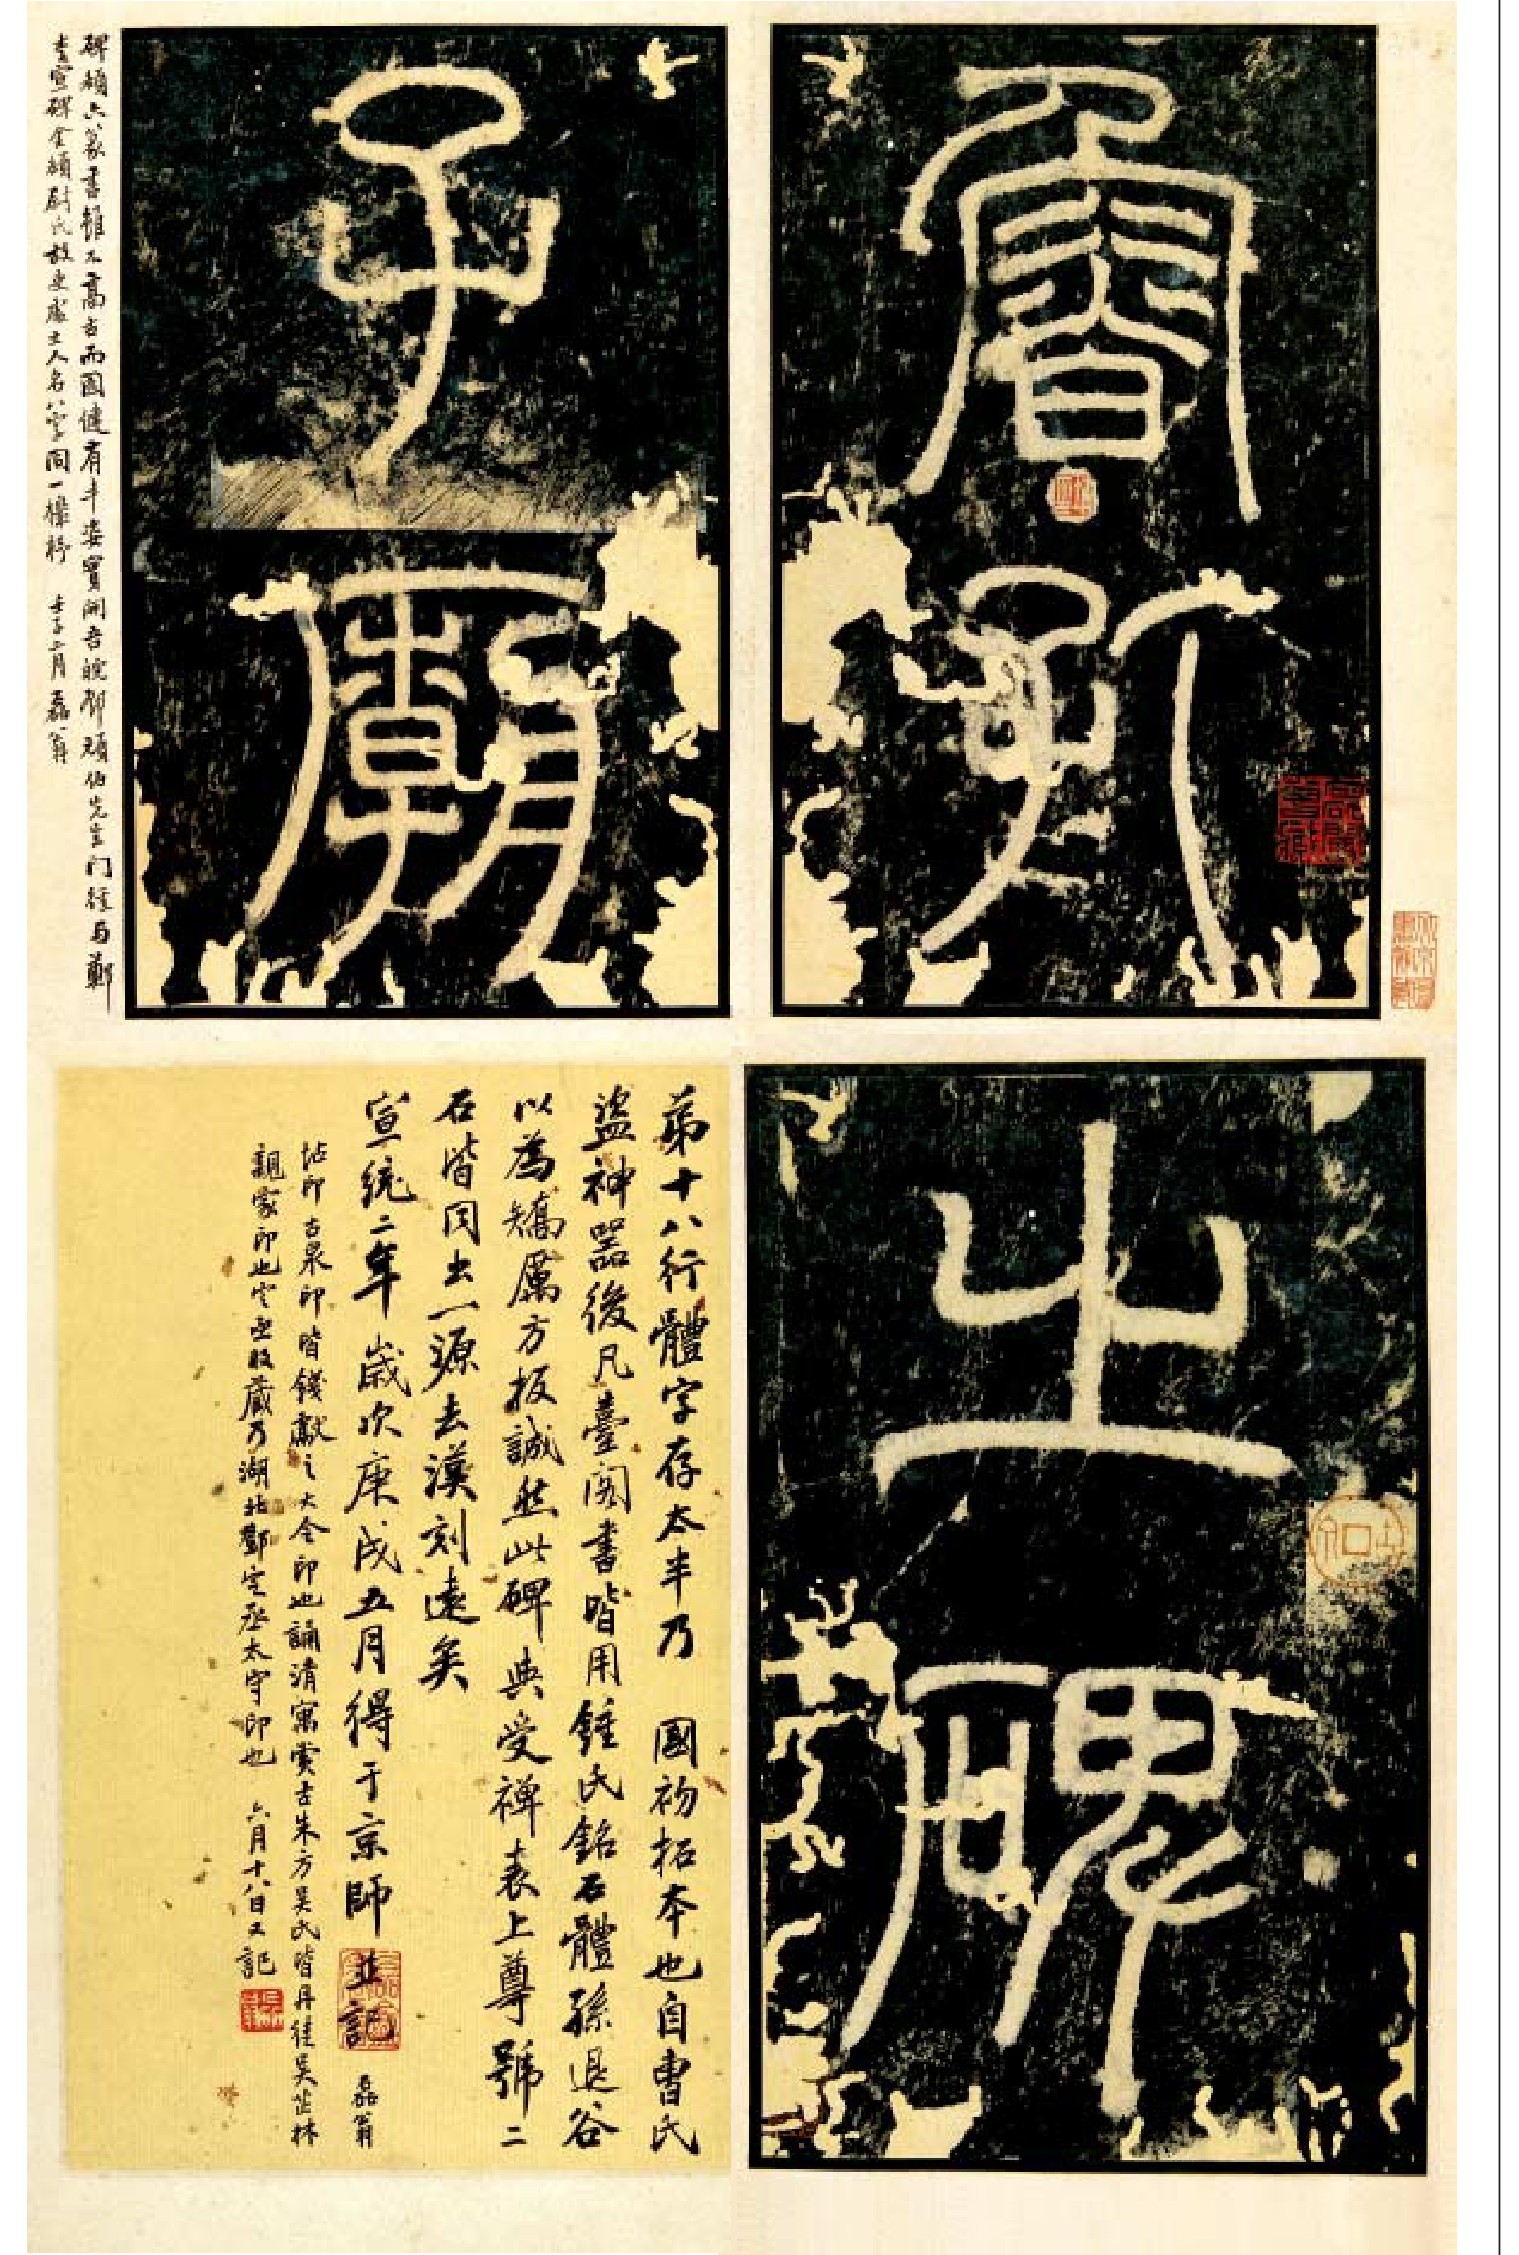 魯孔
子廟
碑額六篆書雖不高古而圓健有丰姿實開吾皖鄧頑伯先生門徑与鄭
季宣碑全額尉氏故吏處士人名八字同一機杼 壬子二月磊翁
之碑
弟十八行體字存太半乃 國初拓本也自曹氏
盜神器後凡臺閣書皆用鍾氏銘石體孫退谷
以為矯厲方板誠然此碑與受禪表上尊號二
石皆同出一源去漢刻遠矣
宣統二年歲次庚戌五月得于京師並記 磊翁
怙印古泉印皆錢獻之大令印也誦清寓賞古朱方吳氏皆丹徒吳芷林
親家印也空函收藏乃湖北鄭空丞太守印也 六月十八日又記